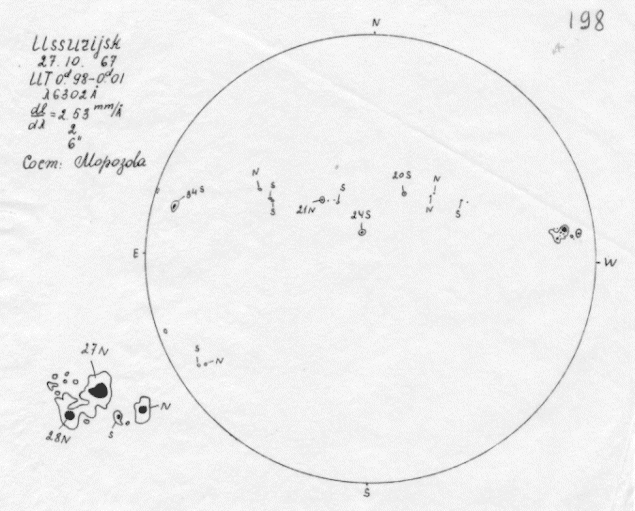 198
Ussurijsk
27. 10. 67
UT 0.ᵈ98-0.ᵈ01
λ6302Å
dl/dλ = 2.53 mm/Å
2
6"
Сост: Морозова
N
N
S
S
34S
21N
S
24S
20S
N
N
S
E
W
S
N
27N
28N
S
N
S